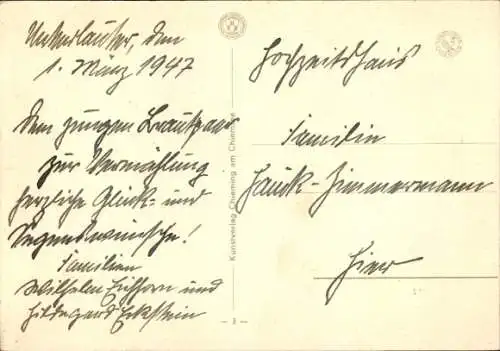 Unterlauter, den
1. März 1947
Dem jungen Brautpaar
zur Vermählung
herzliche Glück- und
Segenswünsche!
Familien
Wilhelm Eichhorn und
Hildegard Eckstein
Kunstverlag Chieming am Chiemsee
- 3 -
Hochzeitshaus
Familien
Hauck-Zimmermann
Hier